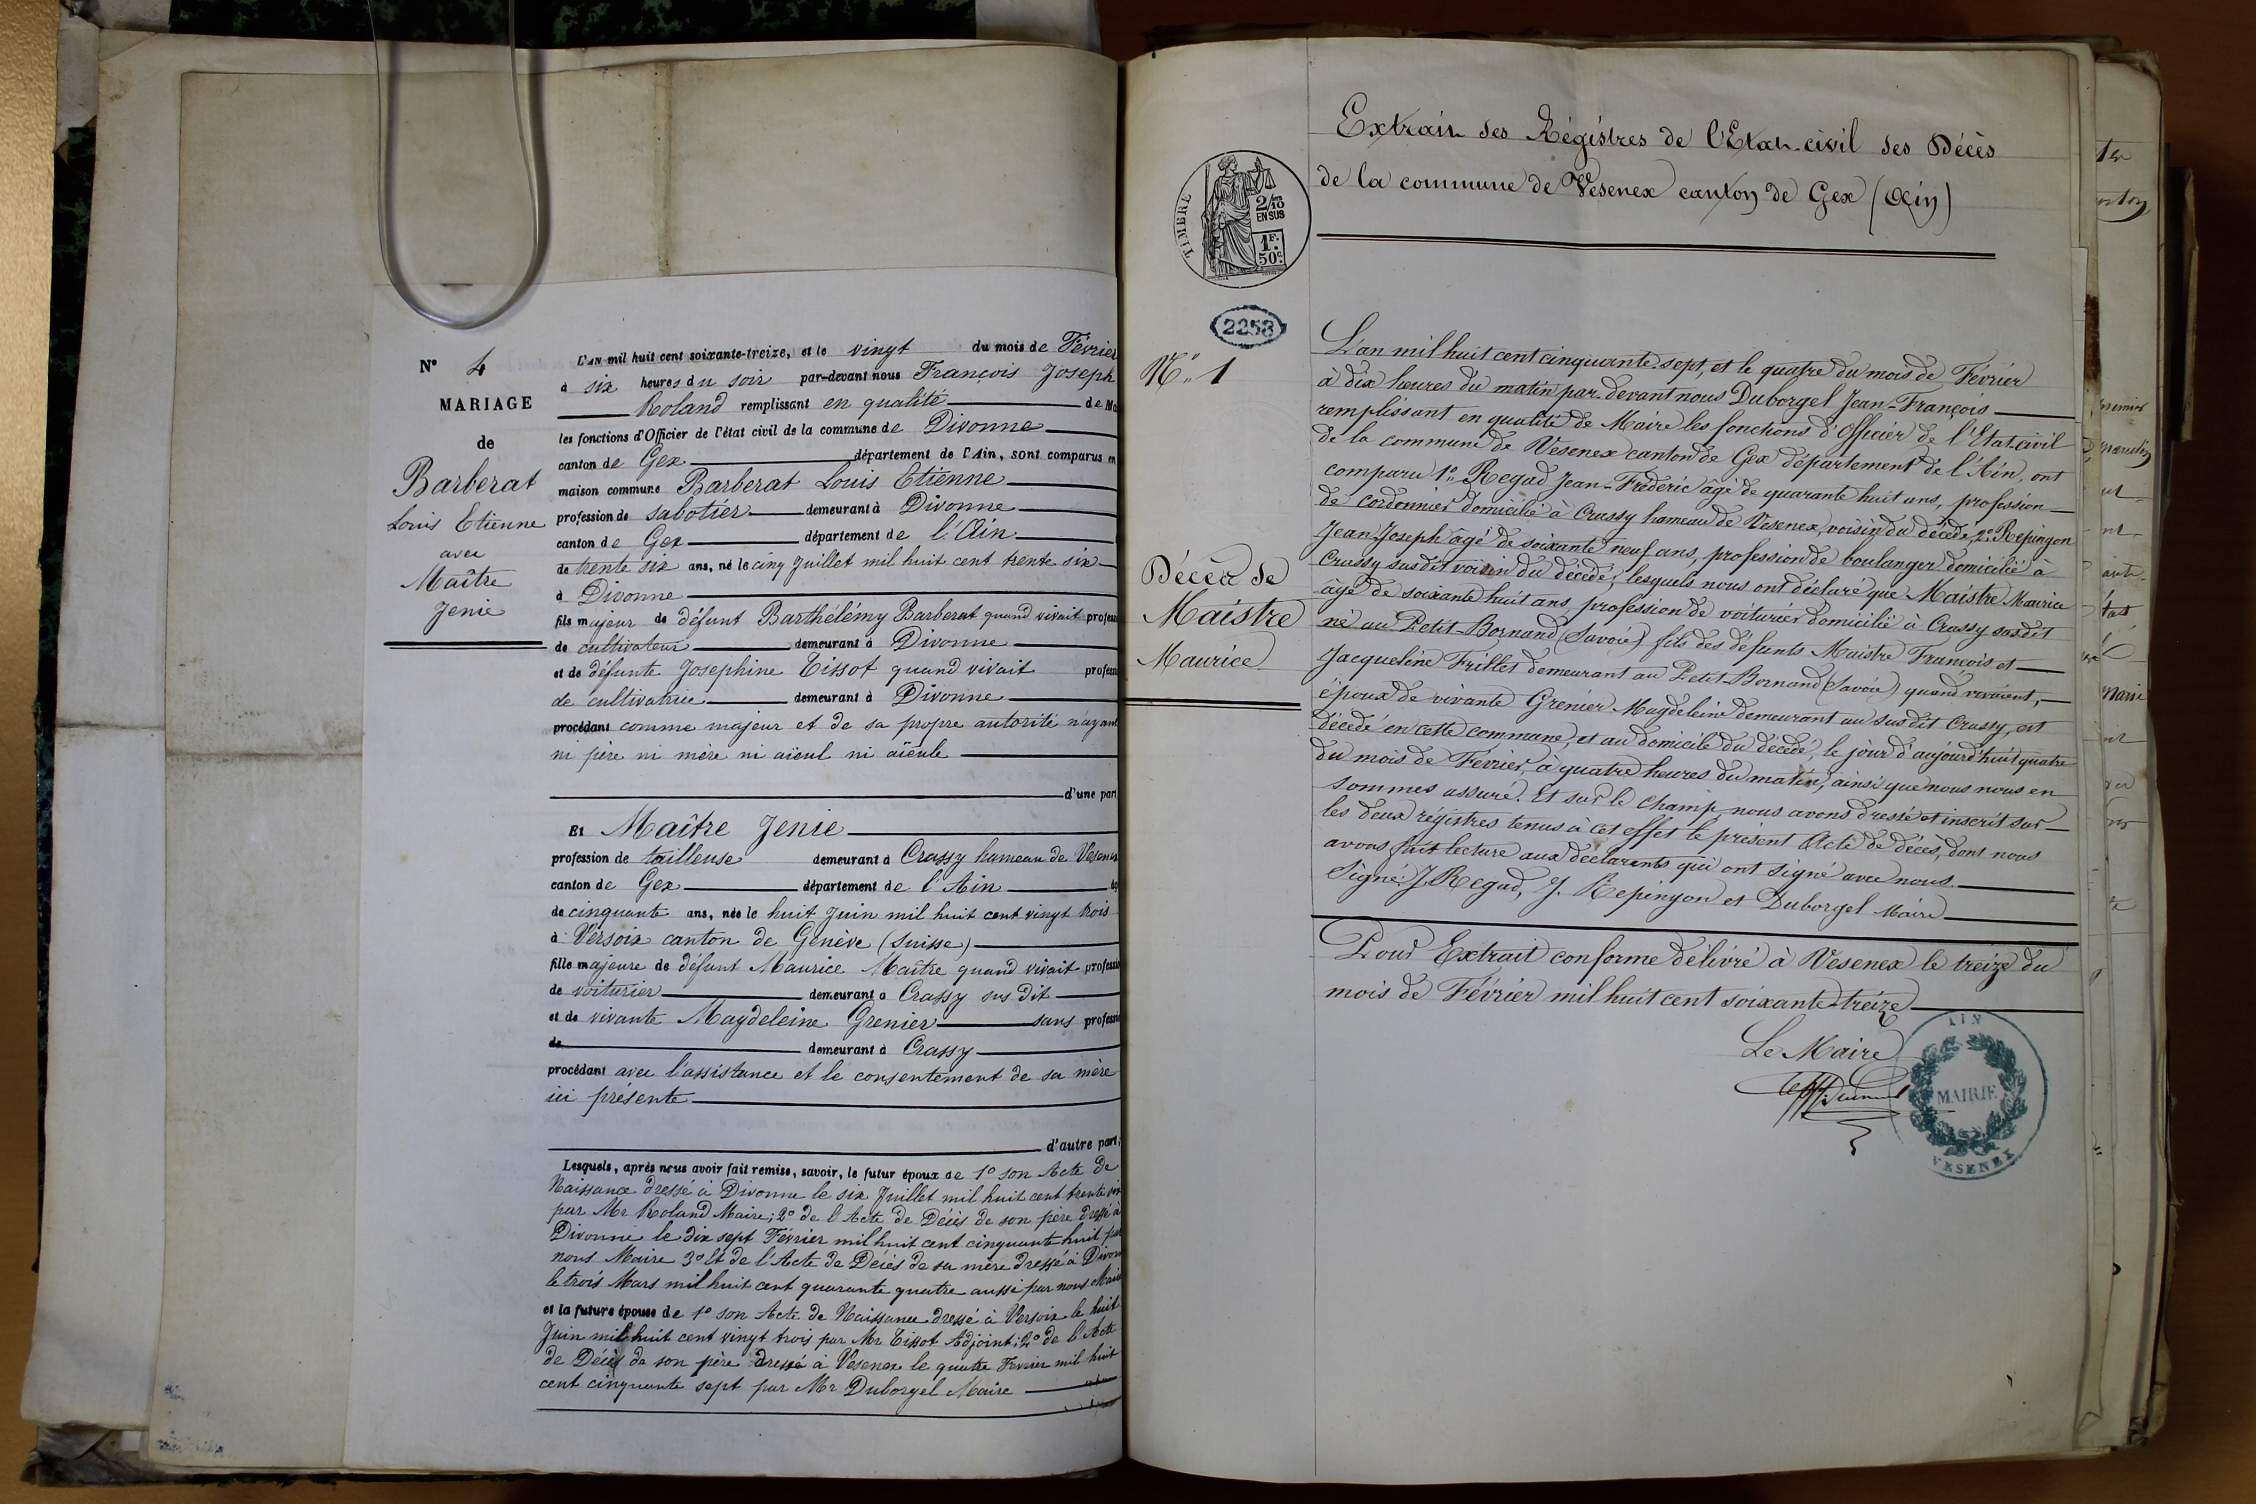 N° 4
MARIAGE
de
Barberat
Louis Etienne
avec
Maître
Jenie
L'AN mil huit cent soixante-treize, et le vingt du mois de Février
à six heures du soir par-devant nous François Joseph
Roland remplissant en qualité de Ma
les fonctions d'Officier de l'état civil de la commune de Divonne
canton de Gex département de l'Ain, sont comparus en
maison commune Barberat Louis Etienne
profession de sabotier demeurant à Divonne
canton de Gex département de l'Ain
de trente six ans, né le cinq Juillet mil huit cent trente six
à Divonne
fils majeur de défunt Barthélémy Barberat quand vivait profess
de cultivateur demeurant à Divonne
et de défunte Josephine Tissot quand vivait profess
de cultivatrice demeurant à Divonne
procédant comme majeur et de sa propre autorité n'ayant
ni père ni mère ni aïeul ni aïeule
d'une part
Et Maître Jenie
profession de tailleuse demeurant à Crassy hameau de Vesenex
canton de Gex département de l'Ain
de cinquante ans, née le huit Juin mil huit cent vingt trois
à Versoix canton de Genève (Suisse)
fille majeure de défunt Maurice Maître quand vivait professio
de voiturier demeurant à Crassy sus dit
et de vivante Magdeleine Grenier sans professio
de demeurant à Crassy
procédant avec l'assistance et le consentement de sa mère
ici présente
d'autre part,
Lesquels, après nous avoir fait remise, savoir, le futur époux de 1° son Acte de
Naissance dressé à Divonne le six Juillet mil huit cent trente six
par Mr Roland Maire; 2° de l'Acte de Décès de son père dressé à
Divonne le dix sept Février mil huit cent cinquante huit par
nous Maire 3° Et de l'Acte de Décès de sa mère dressé à Divon
le trois Mars mil huit cent quarante quatre aussi par nous Maire
et la future épouse de 1° son Acte de Naissance dressé à Versoix le huit
Juin mil huit cent vingt trois par Mr Tissot Adjoint; 2° de l'Acte
de Décès de son père dressé à Vesenex le quatre Fevrier mil huit
cent cinquante sept par Mr Duborgel Maire
Extrait des Régistres de l'Etat-civil des Décès
de la commune de Vesenex canton de Gex (Ain)
TIMBRE
2/10
EN SUS
1F.
50c.
2258
N° 1
Décès de
Maistre
Maurice
L'an mil huit cent cinquante-sept, et le quatre du mois de Février
à dix heures du matin par-devant nous Duborgel Jean-François
remplissant en qualité de Maire les fonctions d'Officier de l'Etat-civil
de la commune de Vesenex canton de Gex département de l'Ain, ont
comparu 1° Regad Jean-Frédéric âgé de quarante huit ans, profession
de cordonnier domicilié à Crassy hameau de Vesenex, voisin du décédé, 2° Repingon
Jean Joseph âgé de soixante neuf ans, profession de boulanger domicilié à
Crassy susdit voisin du décédé, lesquels nous ont déclaré que Maistre Maurice
âgé de soixante huit ans, profession de voiturier domicilié à Crassy susdit
né au Petit-Bornand (Savoie) fils des défunts Maistre François et
Jacqueline Frillet demeurant au Petit-Bornand (Savoie) quand vivaient,
époux de vivante Grenier Magdeleine demeurant au susdit Crassy, est
décédé en cette commune, et au domicile du décédé, le jour d'aujourd'hui quatre
du mois de Février, à quatre heures du matin, ainsi que nous nous en
sommes assuré. Et sur le champ nous avons dressé et inscrit sur
les deux régistres tenus à cet effet le présent Acte de décès, dont nous
avons fait lecture aux déclarants qui ont signé avec nous.
Signé: J. Regad, J. Repingon et Duborgel Maire
Pour Extrait conforme délivré à Vesenex le treize du
mois de Février mil huit cent soixante-treize
Le Maire
AIN
MAIRIE
VESENEX